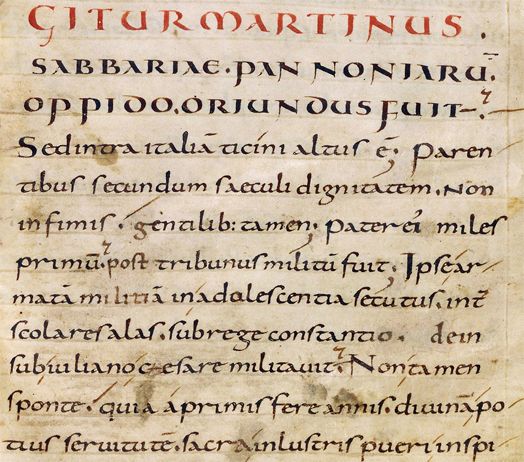 GITUR MARTINUS.
SABBARIAE. PANNONIARŪ.
OPPIDO. ORIUNDUS FUIT.
Sed intra italiā ticini altus ē; Paren
tibus secundum saeculi dignitatem. Non
infimis. gentilib: tamen; Pater ei' miles
primū. post tribunus militū fuit; Ipse ar
matā militiā in adolescentia secutus. int̄
scolares alas. sub rege constantio. dein
sub iuliano caesare militavit. Non tamen
sponte. quia a primis fere annis. divinā po
tius servitutē. sacra inlustris pueri inspi